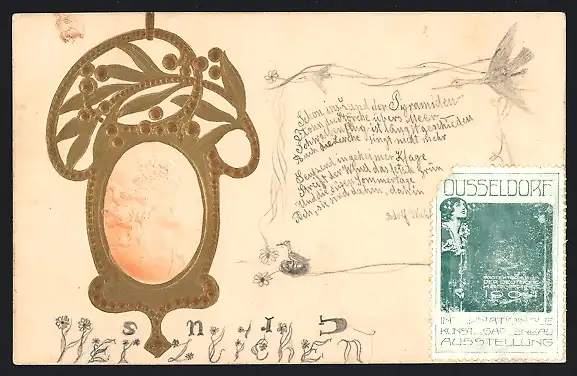 Schon ins Land der Pyramiden
Flohn die Störche übers Meer
Schwalbenflug ist längst geschieden
Auch die Lerche singt nicht mehr
Seufzend in geheimer Klage
Streift der Wind das letzte Grün
Und die süssen Sommertage
Ach, sie sind dahin, dahin
DÜSSELDORF
DER DEUTSCHEN
1904
INTERNATIONALE
KUNST GARTENBAU
AUSSTELLUNG
HERZLICHEN